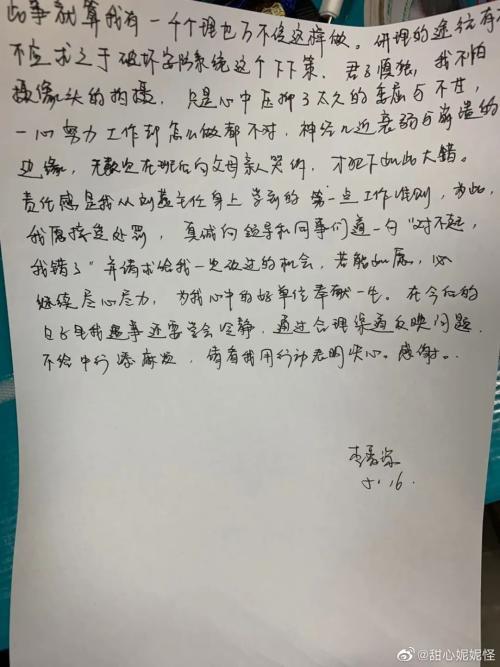 此事就算我有一千个理也万不该这样做。讲理的途径有
不应求之于破坏安防系统这个下下策。君子慎独,我不怕
摄像头的拍摄,只是心中压抑了太久的委屈与不甘,
一心努力工作却怎么做都不对,神经几近衰弱与崩溃的
边缘,无数次在班后向父母亲人哭诉,才犯下如此大错。
责任感是我从刘主任身上学到的第一点工作准则,为此,
我愿接受处罚,真诚向领导和同事们道一句“对不起,
我错了”并请求给我一次改过的机会,若能如愿,必
继续尽心尽力,为我心中的好单位奉献一生。在今后的
日子里我遇事还需学会冷静,通过合理渠道反映问题,
不给中行添麻烦,请看我用行动表明决心。感谢。
李
5.16.
@甜心妮妮怪